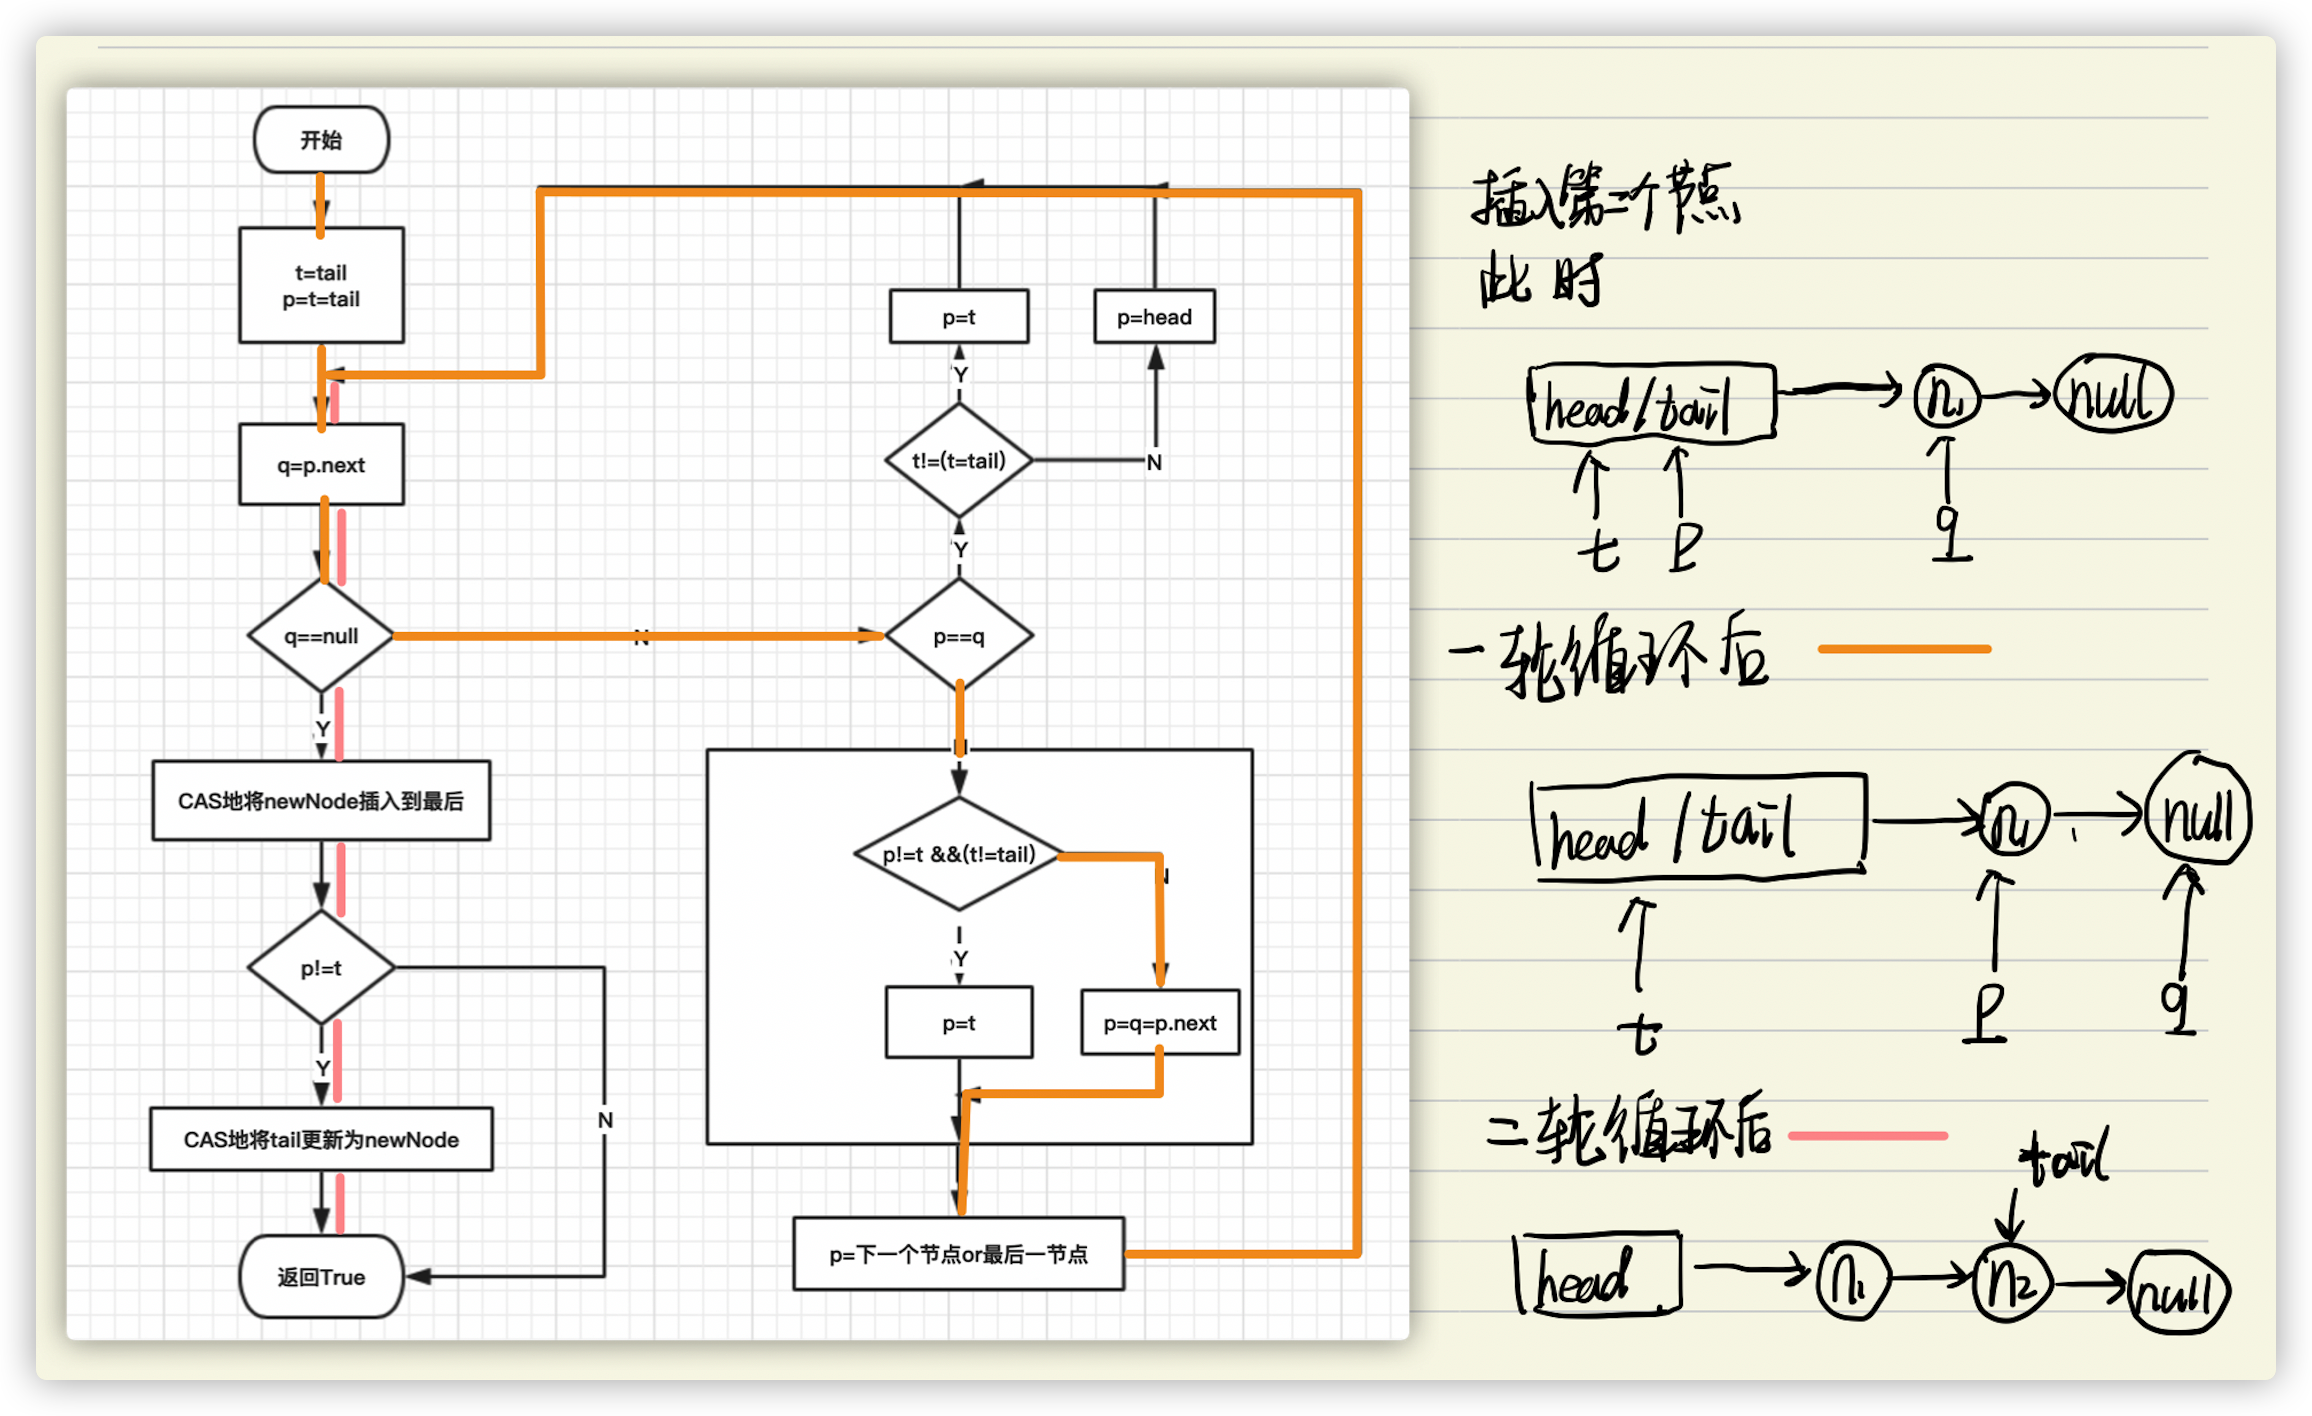 开始
t=tail
p=t=tail
q=p.next
q==null
N
Y
CAS地将newNode插入到最后
p!=t
Y
N
CAS地将tail更新为newNode
返回True
p=t
p=head
Y
t!=(t=tail)
N
Y
p==q
N
p!=t &&(t!=tail)
N
Y
p=t
p=q=p.next
p=下一个节点or最后一节点
插入第二个节点
此时
head/tail
n1
null
t
p
q
一轮循环后
head/tail
n1
null
t
p
q
二轮循环后
tail
head
n1
n2
null